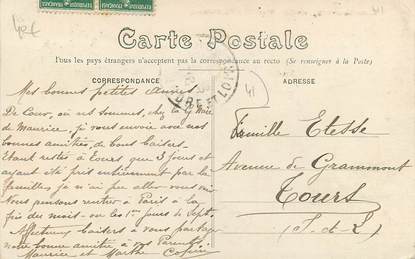 Carte Postale
Tous les pays étrangers n'acceptent pas la correspondance au recto (Se renseigner à la Poste)
CORRESPONDANCE
ADRESSE
Mes bonnes petites Amies
De Cour, où nous sommes, chez la
de Maurice, je vous envoie avec nos
bonnes amitiés, de bons baisers
Etant restés à Tours que 3 jours et
ayant été pris entièrement par la
famille, je n'ai pu aller vous voir
Nous pensons rentrer à Paris à la
fin du mois ou les 1ers jours de Sept.
Affectueux baisers à vous partager
notre bonne amitié à vos Parents.
Maurice et Marthe
Famille Etesse
Avenue de Grammont
Tours
(I-et-L)
41
EURE ET LOIR